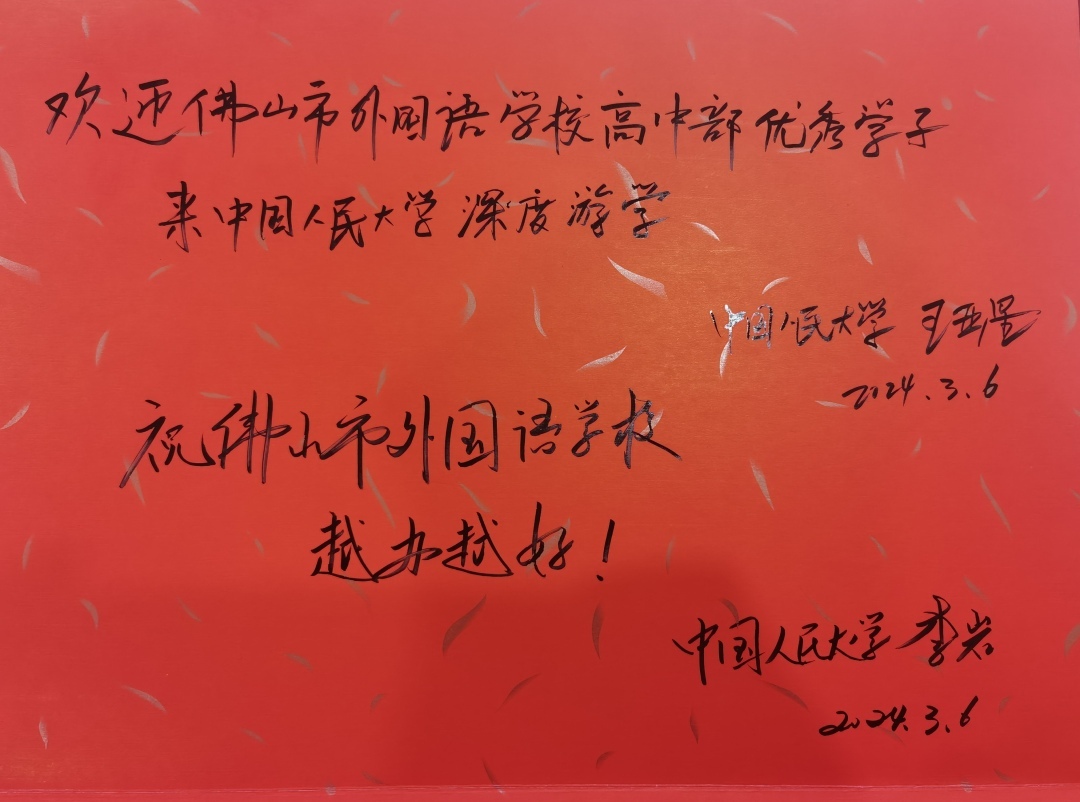 欢迎佛山市外国语学校高中部优秀学子
来中国人民大学深度游学
中国人民大学 王亚星
2024.3.6
祝佛山市外国语学校
越办越好！
中国人民大学 李岩
2024.3.6